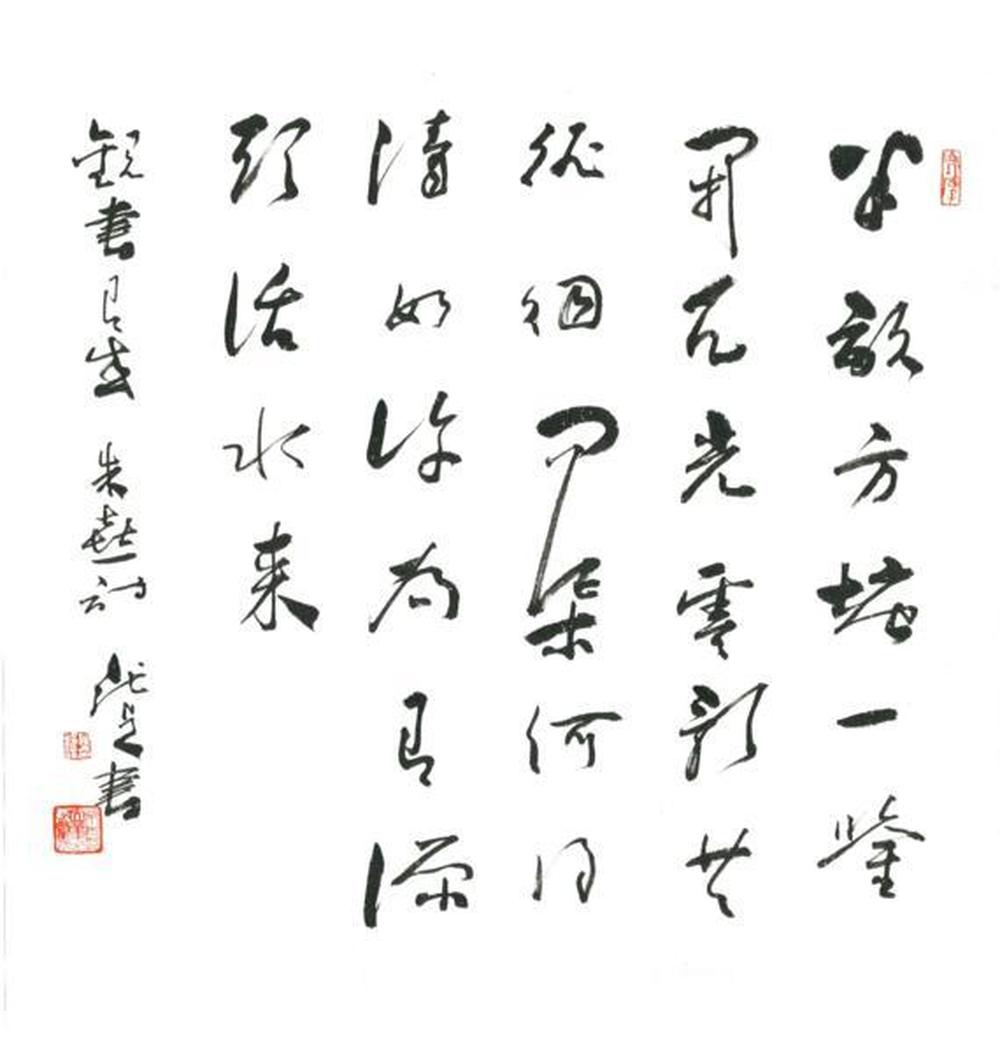 半畝方塘一鑒
開天光雲影共
徘徊問渠何得
清如許為有源
頭活水来
觀書有感 朱熹詩 書